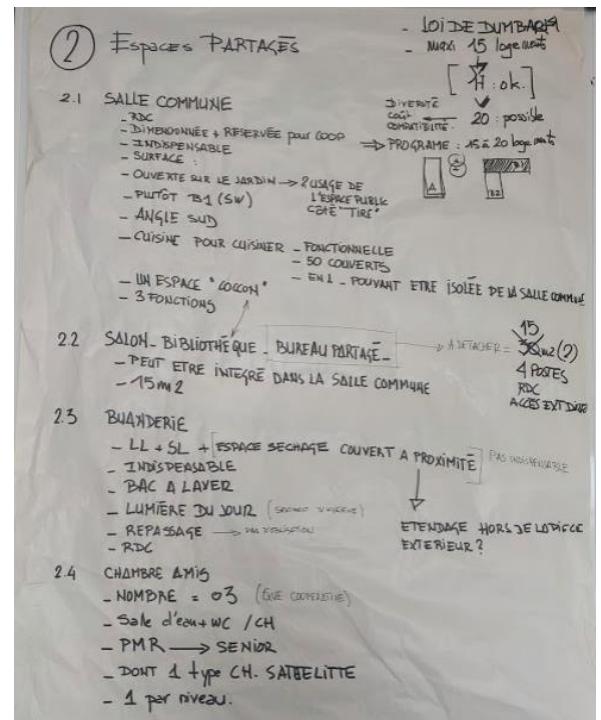 2 ESPACES PARTAGÉS
- LOI DE DUMBAR
- MAXI 15 logements
[ 17 : ok. ]
20 : possible
DIVERSITÉ
COÛT
COMPATIBILITÉ.
=> PROGRAMME : 15 à 20 logements
A
B1
B2
2.1 SALLE COMMUNE
- RDC
- DIMENSIONNÉE + RESERVÉE pour COOP
- INDISPENSABLE
- SURFACE :
- OUVERTE SUR LE JARDIN -> 2 USAGE DE
L'ESPACE PUBLIC
CÔTÉ "TIRE"
- PLUTÔT B1 (SW)
- ANGLE SUD
- CUISINE POUR CUISINER - FONCTIONNELLE
- 50 COUVERTS
- EN 1 - POUVANT ETRE ISOLÉE DE LA SALLE COMMUNE
- UN ESPACE "COCOON"
- 3 FONCTIONS
2.2 SALON - BIBLIOTHÉQUE - BUREAU PARTAGÉ - -> A DETACHER =
15
m2 (?)
4 POSTES
RDC
ACCES EXT DIRECT
- PEUT ETRE INTEGRÉ DANS LA SALLE COMMUNE
- 15 m2
2.3 BUANDERIE
- LL + SL + ESPACE SECHAGE COUVERT A PROXIMITÉ PAS INDISPENSABLE
- INDISPENSABLE
- BAC A LAVER
- LUMIÈRE DU JOUR
- REPASSAGE ->
- RDC
ETENDAGE HORS DE LA PIECE
EXTERIEUR ?
2.4 CHAMBRE AMIS
- NOMBRE = 03
- Salle d'eau + WC / CH
- PMR -> SENIOR
- DONT 1 type CH. SATELLITTE
- 1 par niveau.